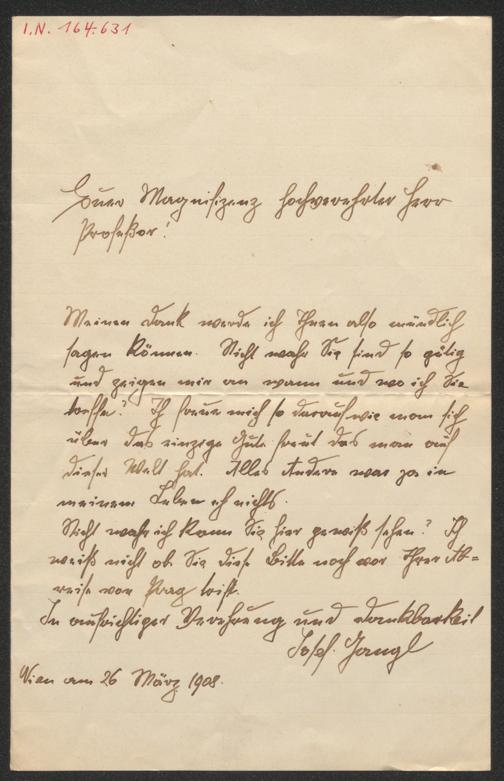 I.N. 164.631
Euer Magnifizenz hochverehrter Herr
Profeßor!
Meinen Dank werde ich Ihnen also mündlich
sagen können. Nicht wahr Sie sind so gütig
und zeigen mir an wann und wo ich Sie
treffe? Ich freue mich so darauf wie man sich
über das einzige Gute freut das man auf
dieser Welt hat. Alles Andere war ja in
meinem Leben eh nichts.
Nicht wahr ich kann Sie hier gewiß sehen? Ich
weiß nicht ob Sie diese Bitte noch vor Ihrer Ab=
reise von Prag trifft.
In aufrichtiger Verehrung und Dankbarkeit
Josef
Wien am 26 März 1908.